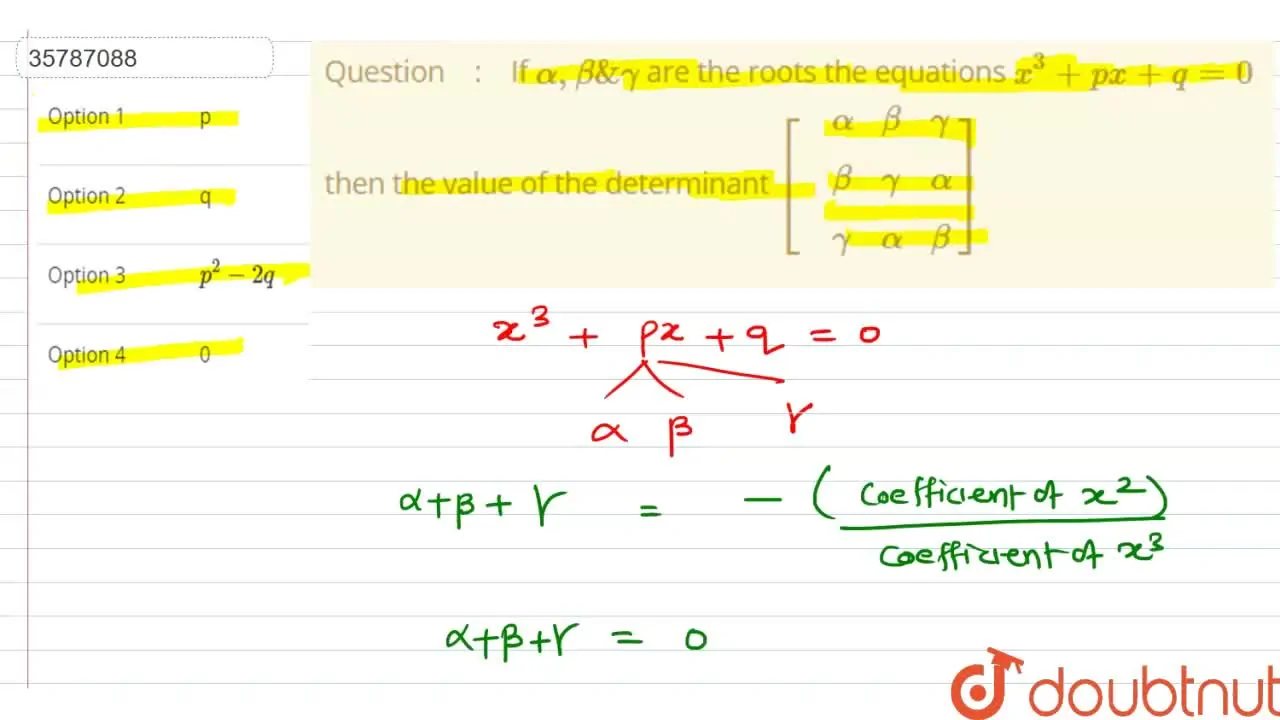 35787088
Option 1 p
Option 2 q
Option 3 p² − 2q
Option 4 0
Question : If α, β&γ are the roots the equations x³ + px + q = 0
then the value of the determinant [ α β γ
β γ α
γ α β ]
x³ + px + q = 0
α β γ
α+β+γ = − (coefficient of x²)
coefficient of x³
α+β+γ = 0
doubtnut